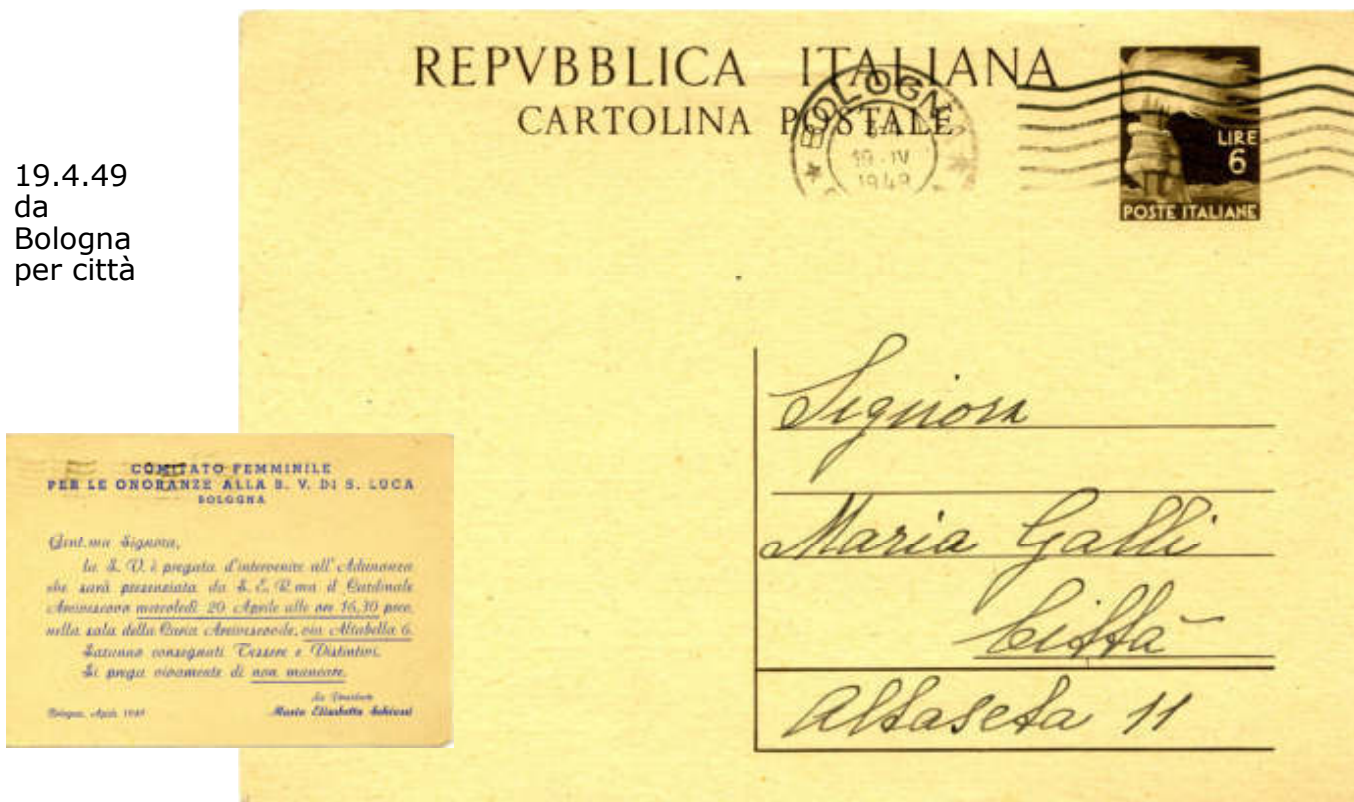 19.4.49
da
Bologna
per città
REPVBBLICA ITALIANA
CARTOLINA POSTALE
BOLOGNA
19·IV
1949
LIRE
6
POSTE ITALIANE
Signora
Maria Galli
Città
Altaseta 11
COMITATO FEMMINILE
PER LE ONORANZE ALLA B. V. DI S. LUCA
BOLOGNA
Gent.ma Signora,
la S. V. è pregata d'intervenire all'Adunanza
che sarà presenziata da S. E. R.ma il Cardinale
Arcivescovo mercoledì 20 Aprile alle ore 16,30 prec.
nella sala della Curia Arcivescovile, via Altabella 6.
Saranno consegnati Tessere e Distintivi.
Si prega vivamente di non mancare.
La
Bologna, Aprile 1949
Maria Elisabetta